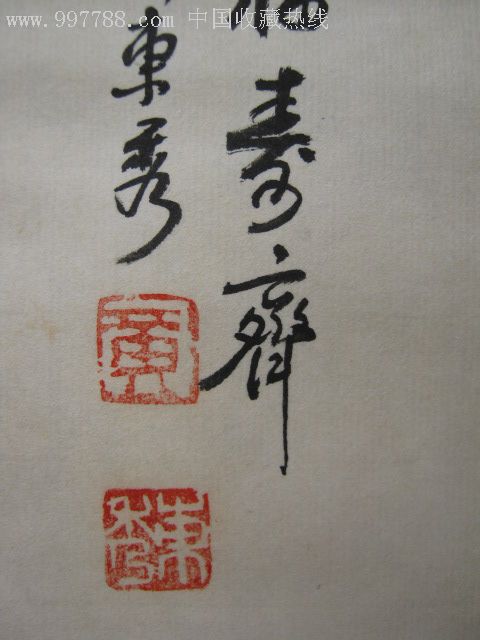 www.997788.com 中国收藏热线
寿齊
東秀
黄
東秀